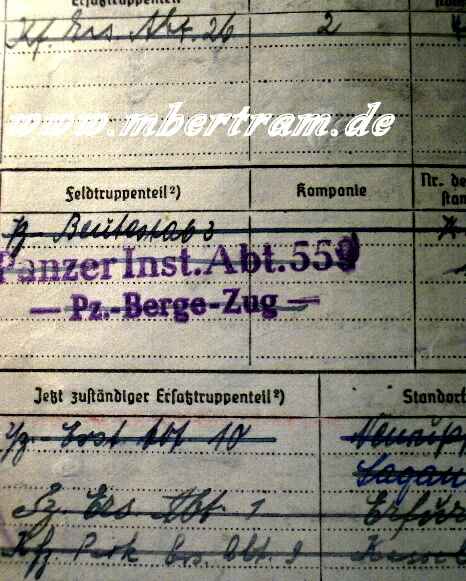 Ersatztruppenteil
Kf. Ers. Abt. 26 2
www.mbertram.de
Feldtruppenteil²) Kompanie Nr. de
Pz Beutestab 3
Panzer Inst. Abt. 559
— Pz.-Berge-Zug —
Jetzt zuständiger Ersatztruppenteil²) Standort
Pz. Ers Abt 10 Neurupp
Sagan
Pz. Ers Abt 1 Erfur
Kfz Park Ers. Abt. 9 Kassel